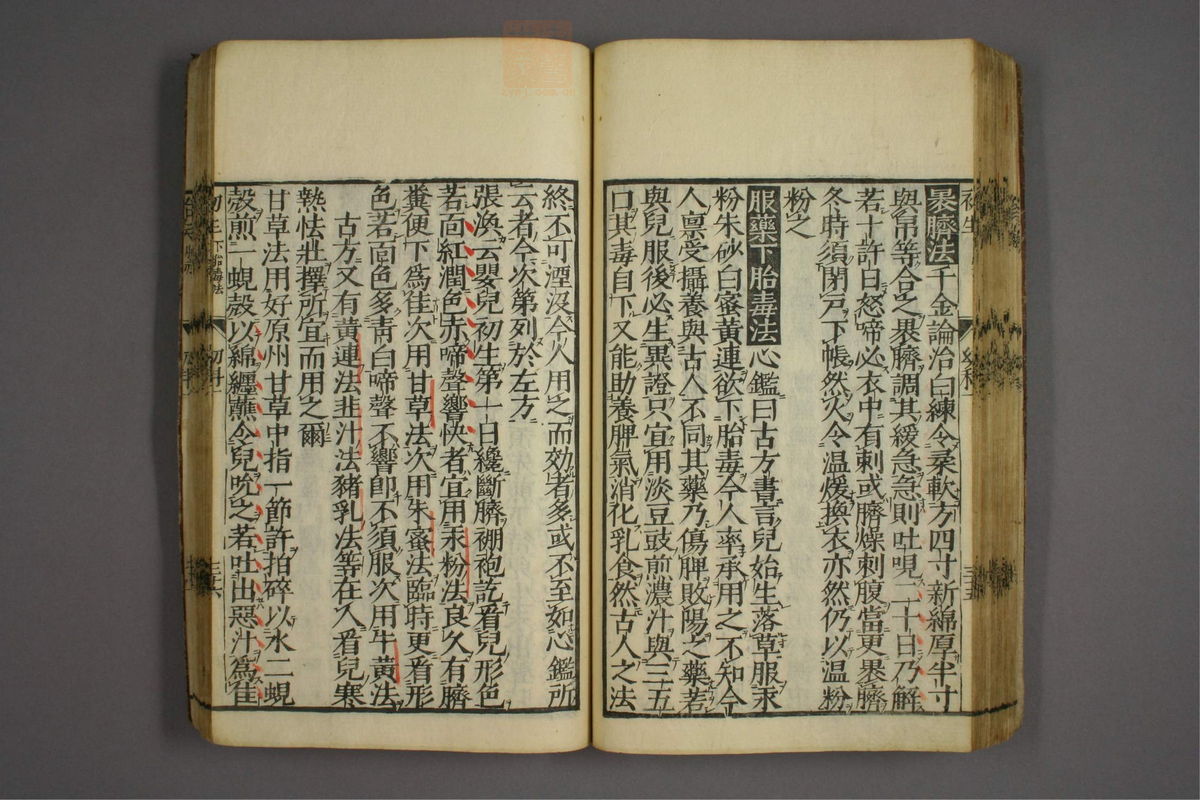 裹臍法千金論治曰練令柔軟方四寸新綿厚半寸
與帛等合之裹臍調其緩急急則吐哯二十日乃解
若十許日怒啼必衣中有刺或臍燥刺腹當更裹臍
冬時須閉戸下帳然火令温煖換衣亦然仍以温粉
粉之
服藥下胎毒法心鑑曰古方書言兒始生落草服汞
粉朱砂白蜜黄連欲下胎毒今人率承用之不知今
人禀受攝養與古人不同其藥乃傷脾敗陽之藥若
與兒服後必生異證只宜用淡豆豉煎濃汁與三五
口其毒自下又能助養脾氣消化乳食然古人之法
終不可湮没今人用之而効者多或不至如心鑑所
云者今次第列於左方
張渙云嬰兒初生第一日纔斷臍綳袍訖看兒形色
若面紅潤色赤啼聲響快者宜用汞粉法良久有臍
糞便下爲佳次用甘草法次用朱蜜法臨時更看形
色若面色多青白啼聲不響即不須服次用牛黄法
古方又有黄連法韭汁法豬乳法等在人看兒寒
熱怯壯擇所宜而用之爾
甘草法用好原州甘草中指一節許拍碎以水二蜆
殼煎一蜆殼以綿纏蘸令兒吮之若吐出惡汁爲佳